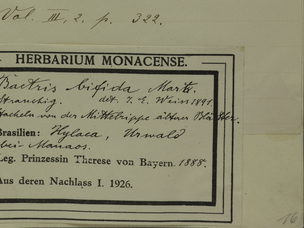 Vol. III, 2. p. 322.
HERBARIUM MONACENSE.
Bactris bifida Mart.
Strauchig. det. J. E. Weiss 1891.
Stacheln von der Mittelrippe älterer Blätter.
Brasilien: Hylaea, Urwald
bei Manaos.
Leg. Prinzessin Therese von Bayern. 1888.
Aus deren Nachlass I. 1926.
16